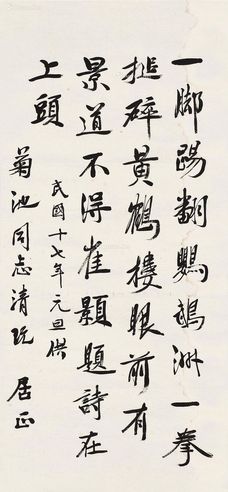 一脚踢翻鸚鵡洲一拳
搥碎黃鶴樓眼前有
景道不得崔顥題詩在
上頭
民國十七年元旦供
菊池同志清玩
居正